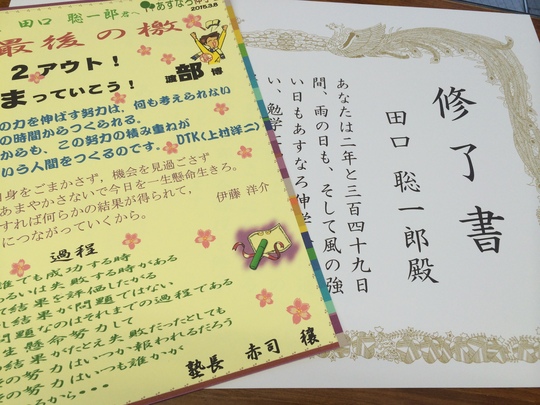 田口 聡一郎君へ
あすなろ伸学
2015.3.8
最後の檄
2アウト！
まっていこう！
渡部 博
の力を伸ばす努力は、何も考えられない
の時間からつくられる。
からも、この努力の積み重ねが
いう人間をつくるのです。 DTK(上村洋二)
自身をごまかさず、機会を見過ごさず
あまやかさないで今日を一生懸命生きろ。
すれば何らかの結果が得られて、
につながっていくから。
伊藤 洋介
過程
誰でも成功する時が
あるいは失敗する時がある
て結果を評価したがる
し結果が問題ではない
問題なのはそれまでの過程である
生懸命努力して
の結果がたとえ失敗だったとしても
の努力はいつか報われるだろう
の努力はいつも誰かが
るから・・・
塾長 赤司 穣
修了書
田口 聡一郎殿
あなたは二年と三百四十九日
間、雨の日も、そして風の強
い日もあすなろ伸学
い、勉学に